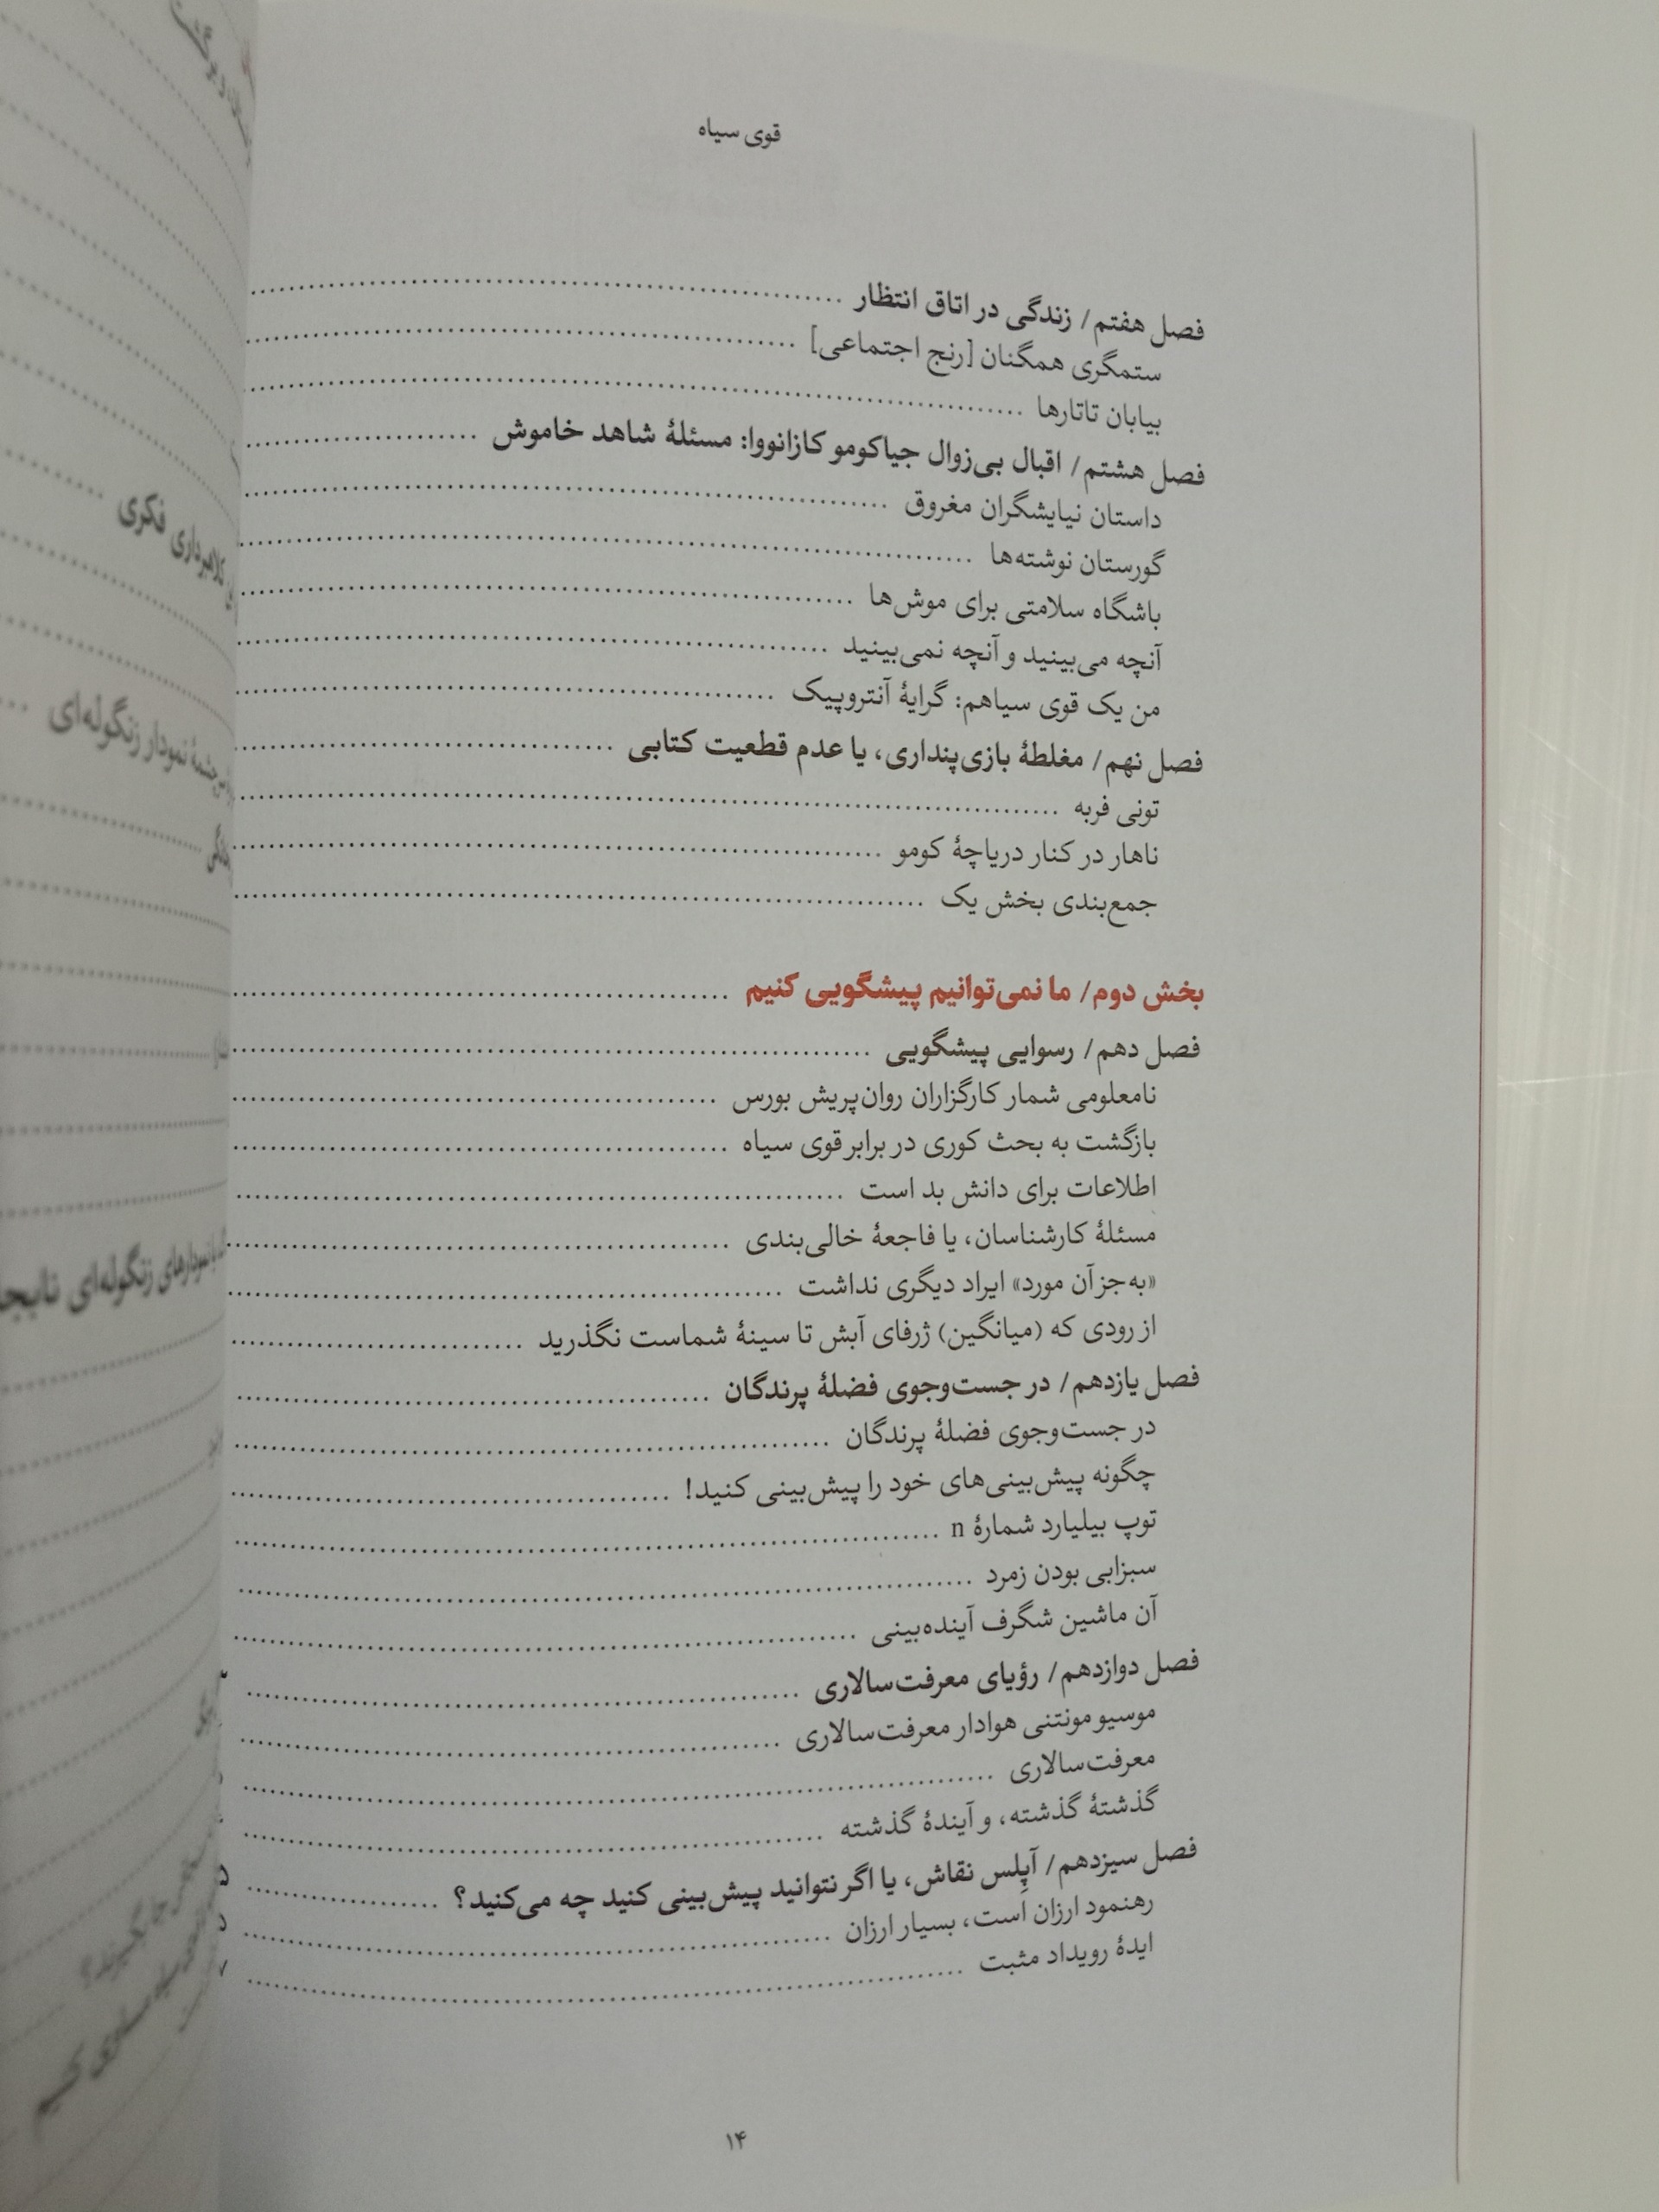 قوی سیاه
فصل هفتم/ زندگی در اتاق انتظار
ستمگری همگنان [رنج اجتماعی]
بیابان تاتارها
فصل هشتم/ اقبال بی‌زوال جیاکومو کازانووا: مسئلهٔ شاهد خاموش
داستان نیایشگران مغروق
گورستان نوشته‌ها
باشگاه سلامتی برای موش‌ها
آنچه می‌بینید و آنچه نمی‌بینید
من یک قوی سیاهم: گرایهٔ آنتروپیک
فصل نهم/ مغلطهٔ بازی‌پنداری، یا عدم قطعیت کتابی
تونی فربه
ناهار در کنار دریاچهٔ کومو
جمع‌بندی بخش یک
بخش دوم/ ما نمی‌توانیم پیشگویی کنیم
فصل دهم/ رسوایی پیشگویی
نامعلومی شمار کارگزاران روان‌پریش بورس
بازگشت به بحث کوری در برابر قوی سیاه
اطلاعات برای دانش بد است
مسئلهٔ کارشناسان، یا فاجعهٔ خالی‌بندی
«به‌جز آن مورد» ایراد دیگری نداشت
از رودی که (میانگین) ژرفای آبش تا سینهٔ شماست نگذرید
فصل یازدهم/ در جست‌وجوی فضلهٔ پرندگان
در جست‌وجوی فضلهٔ پرندگان
چگونه پیش‌بینی‌های خود را پیش‌بینی کنید!
توپ بیلیارد شمارهٔ n
سبزابی بودن زمرد
آن ماشین شگرف آینده‌بینی
فصل دوازدهم/ رؤیای معرفت‌سالاری
موسیو مونتنی هوادار معرفت‌سالاری
معرفت‌سالاری
گذشتهٔ گذشته، و آیندهٔ گذشته
فصل سیزدهم/ آپِلس نقاش، یا اگر نتوانید پیش‌بینی کنید چه می‌کنید؟
رهنمود ارزان است، بسیار ارزان
ایدهٔ رویداد مثبت
۱۴
کلاهبرداری فکری
نمودار زنگوله‌ای
زنگوله‌ای